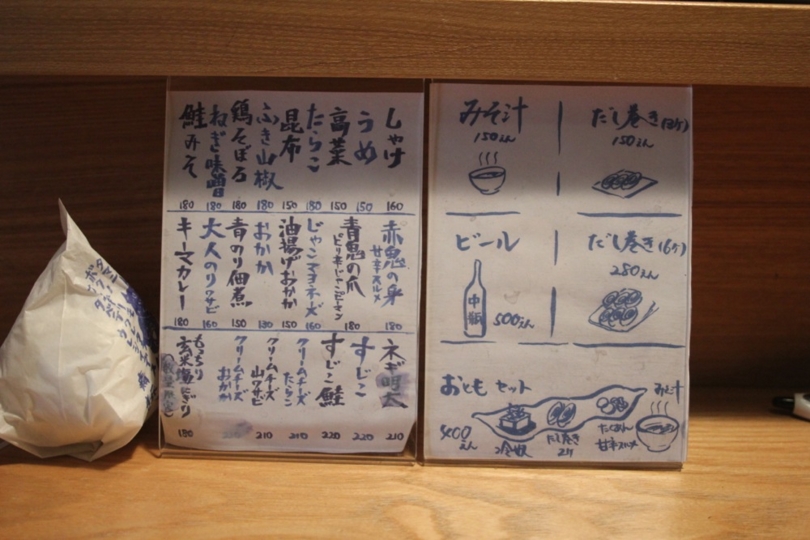 しゃけ 160
うめ 150
高菜 150
たらこ 180
昆布 150
ふき山椒 180
鶏そぼろ 180
ねぎ味噌 180
鮭みそ 180
赤鬼の身 甘辛スルメ 180
青鬼の爪 ピリ辛じゃこピーマン 180
じゃこマヨネーズ 160
油揚げおかか 150
おかか 130
青のり佃煮 150
大人のり ワサビ 160
キーマカレー 180
ネギ明太 210
すじこ 220
すじこ鮭 220
クリームチーズ たらこ 210
クリームチーズ 山ワサビ 210
クリームチーズ おかか
もっちり 玄米塩にぎり 180
みそ汁
150えん
だし巻き(3ケ)
150えん
ビール
中瓶
500えん
だし巻き(6ケ)
280えん
おとも セット
400えん
冷奴
だし巻き 2ケ
たくあん
甘辛スルメ
みそ汁